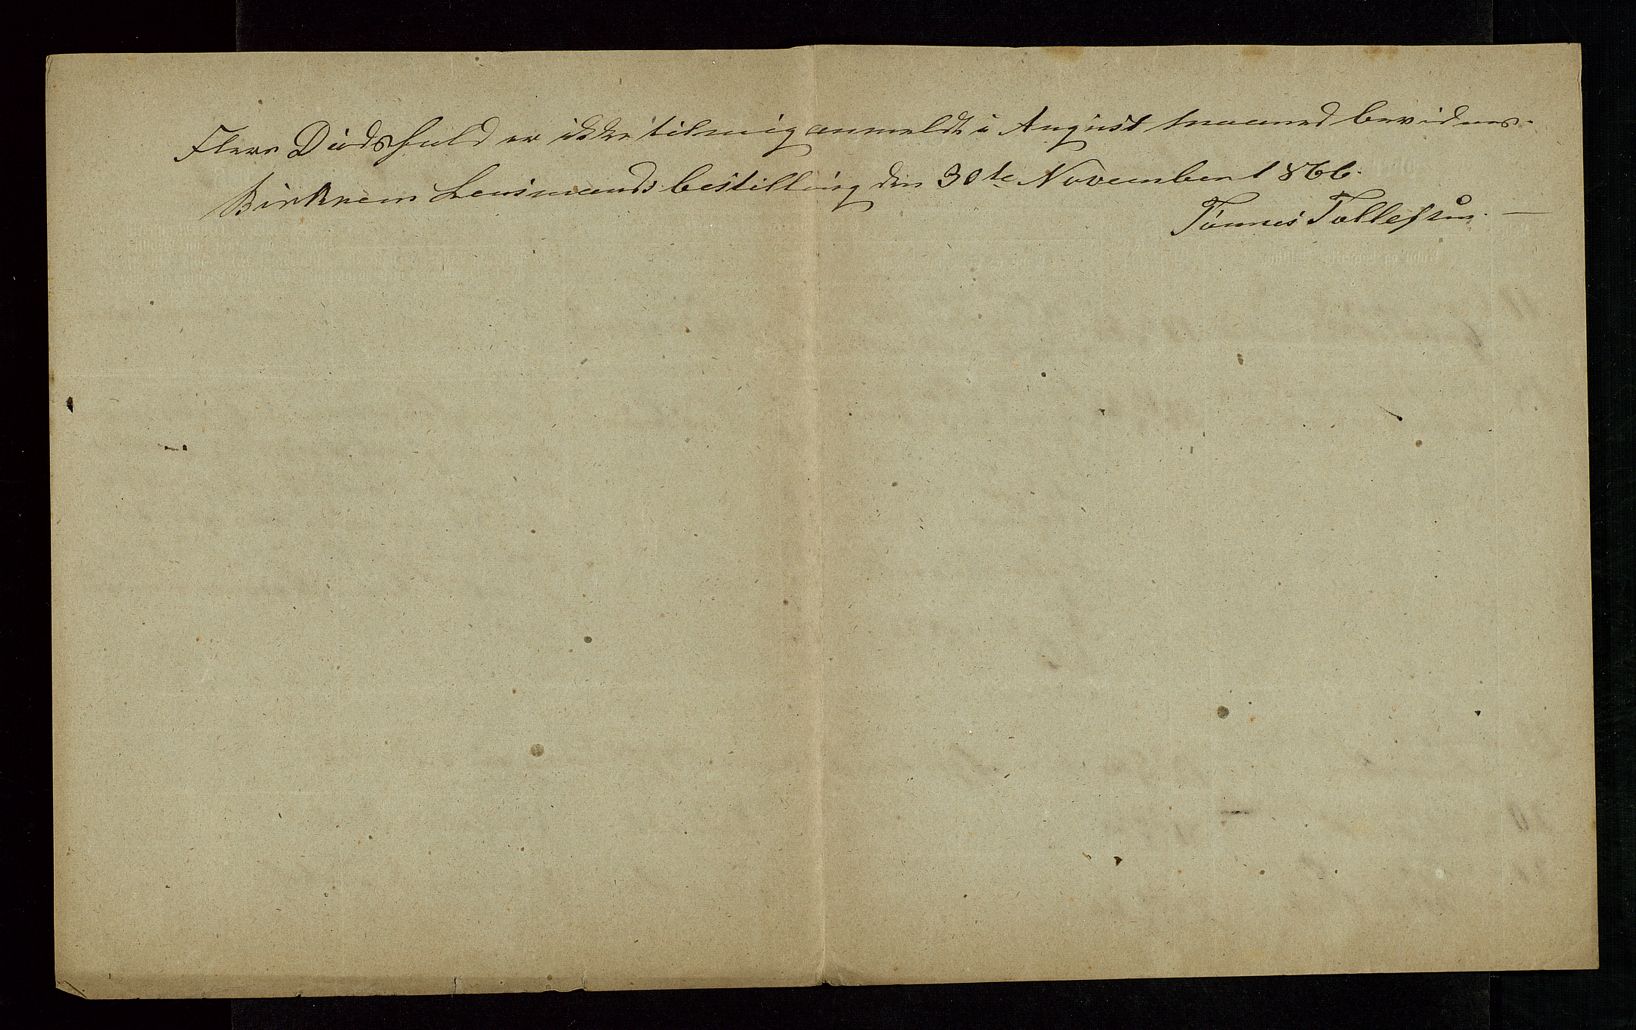 Flere Dødsfald er ikke til mig anmeldt i August maaned bevidnes.
Birkrem Lensmandsbestilling den 30te November 1866.
Tønnes Tollefsen. —